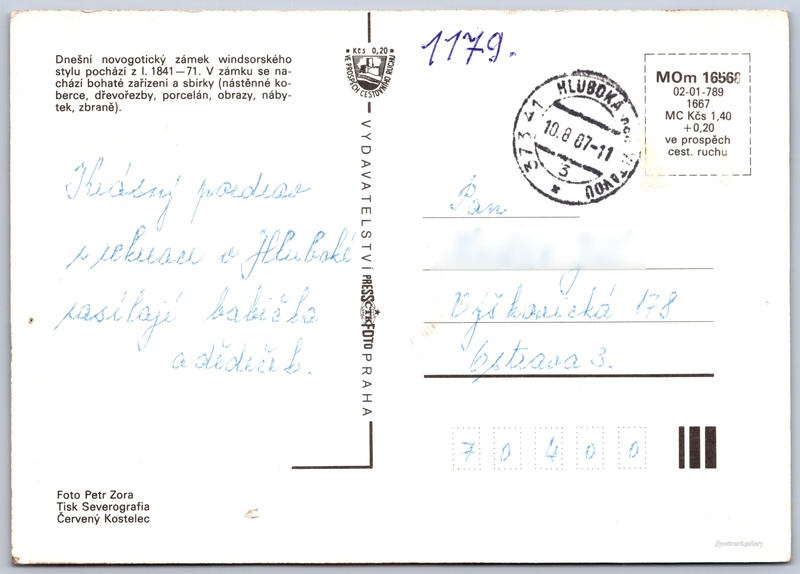 Dnešní novogotický zámek windsorského
stylu pochází z l. 1841—71. V zámku se na-
chází bohaté zařízení a sbírky (nástěnné ko-
berce, dřevořezby, porcelán, obrazy, náby-
tek, zbraně).
Kčs 0,20
VE PROSPĚCH CESTOVNÍHO RUCHU
1179.
373 41 HLUBOKÁ NAD VLTAVOU
10.8.87-11
3
MOm 16568
02-01-789
1667
MC Kčs 1,40
+0,20
ve prospěch
cest. ruchu
Krásný pozdrav
z rekreace v Hluboké
zasílají babička
a dědeček.
VYDAVATELSTVÍ PRESSFOTO PRAHA
ČTK
Pan
Výškovická 178
Ostrava 3.
70400
Foto Petr Zora
Tisk Severografia
Červený Kostelec